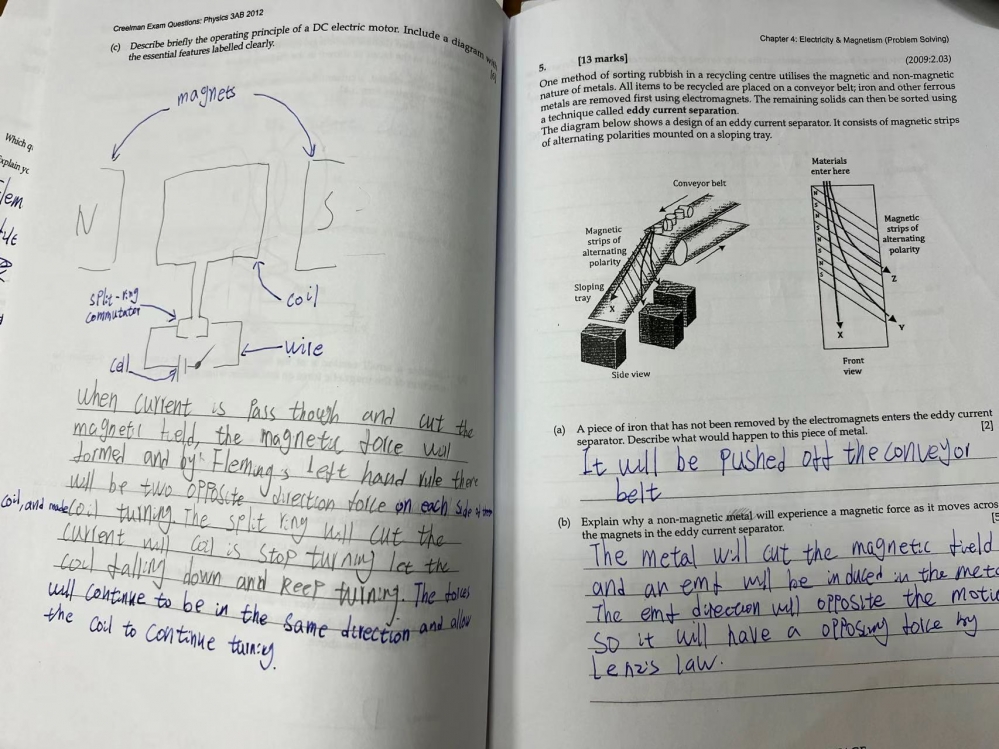 Creelman Exam Questions: Physics 3AB 2012
(c) Describe briefly the operating principle of a DC electric motor. Include a diagram with
the essential features labelled clearly.
magnets
N
S
coil
split-ring
commutator
wire
Cell
When current is Pass though and cut the
magnetic field, the magnetic force will
formed and by Flemings left hand rule there
will be two opposite direction force on each side of the
coil, and made coil turning. The split ring will cut the
current will coil is stop turning let the
coil falling down and keep turning. The forces
will continue to be in the same direction and allow
the coil to continue turning.
Which
explain
Chapter 4: Electricity & Magnetism (Problem Solving)
5. [13 marks] (2009:2.03)
One method of sorting rubbish in a recycling centre utilises the magnetic and non-magnetic
nature of metals. All items to be recycled are placed on a conveyor belt; iron and other ferrous
metals are removed first using electromagnets. The remaining solids can then be sorted using
a technique called eddy current separation.
The diagram below shows a design of an eddy current separator. It consists of magnetic strips
of alternating polarities mounted on a sloping tray.
Conveyor belt
Magnetic
strips of
alternating
polarity
Sloping
tray
X
Side view
Materials
enter here
Magnetic
strips of
alternating
polarity
Z
Y
X
Front
view
(a) A piece of iron that has not been removed by the electromagnets enters the eddy current
separator. Describe what would happen to this piece of metal. [2]
It will be pushed off the conveyor
belt
(b) Explain why a non-magnetic metal will experience a magnetic force as it moves acros
the magnets in the eddy current separator. [5
The metal will cut the magnetic field
and an emf will be induced in the meta
The emf direction will opposite the motio
So it will have a opposing force by
Lenz's law.